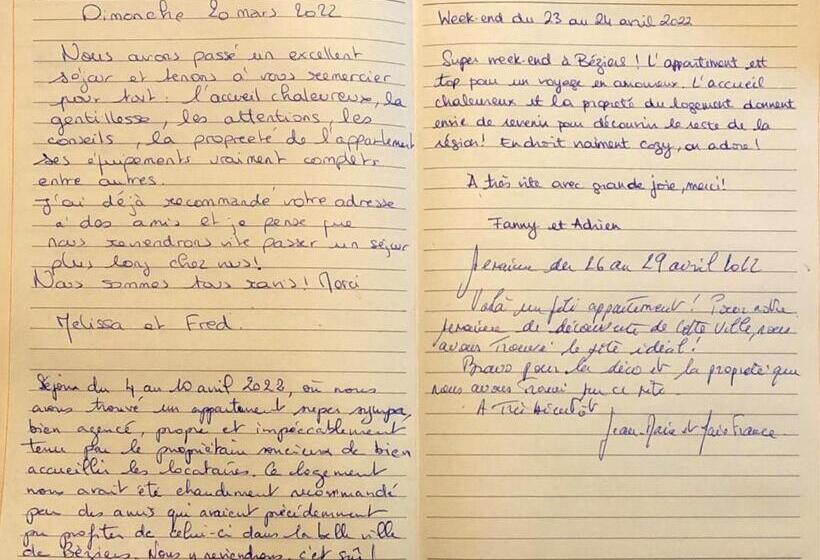 Dimanche 20 mars 2022
Nous avons passé un excellent
séjour et tenons à vous remercier
pour tout : l'accueil chaleureux, la
gentillesse, les attentions, les
conseils, la propreté de l'appartement
ses équipements vraiment complets
entre autres.
J'ai déjà recommandé votre adresse
à des amis et je pense que
nous reviendrons vite passer un séjour
plus long chez vous!
Nous sommes tous ravis! Merci
Melissa et Fred.
Séjour du 4 au 10 avril 2022, où nous
avons trouvé un appartement super sympa,
bien agencé, propre et impeccablement
tenu par le propriétaire soucieux de bien
accueillir les locataires. Ce logement
nous avait été chaudement recommandé
par des amis qui avaient précédemment
pu profiter de celui-ci dans la belle ville
de Béziers. Nous y reviendrons, c'est sûr!
Week-end du 23 au 24 avril 2022
Super week-end à Béziers! L'appartement est
top pour un voyage en amoureux. L'accueil
chaleureux et la propreté du logement donnent
envie de revenir pour découvrir le reste de la
région! Endroit vraiment cozy, on adore!
A très vite avec grande joie, merci!
Fanny et Adrien
Semaine du 26 au 29 avril 2022
Voilà un joli appartement! Pour notre
semaine de découverte de cette ville, nous
avons trouvé le gîte idéal!
Bravo pour la déco et la propreté que
nous avons trouvé sur ce site.
A Très bientôt
Jean-Marie et Marie France